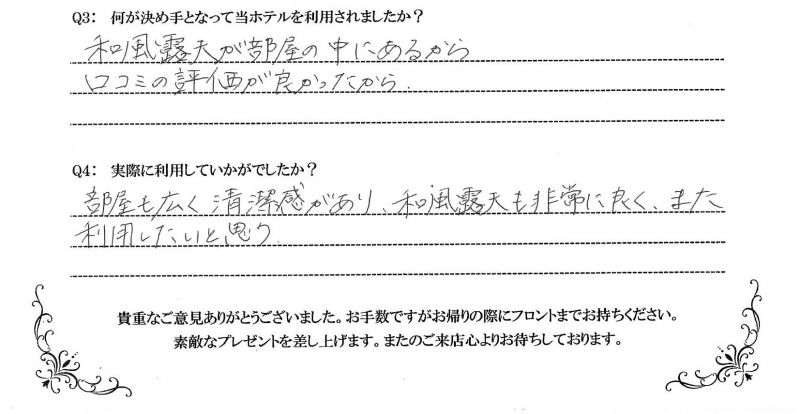 Q3： 何が決め手となって当ホテルを利用されましたか？
和風露天が部屋の中にあるから
口コミの評価が良かったから.
Q4： 実際に利用していかがでしたか？
部屋も広く清潔感があり、和風露天も非常に良く、また
利用したいと思う
貴重なご意見ありがとうございました。お手数ですがお帰りの際にフロントまでお持ちください。
素敵なプレゼントを差し上げます。またのご来店心よりお待ちしております。